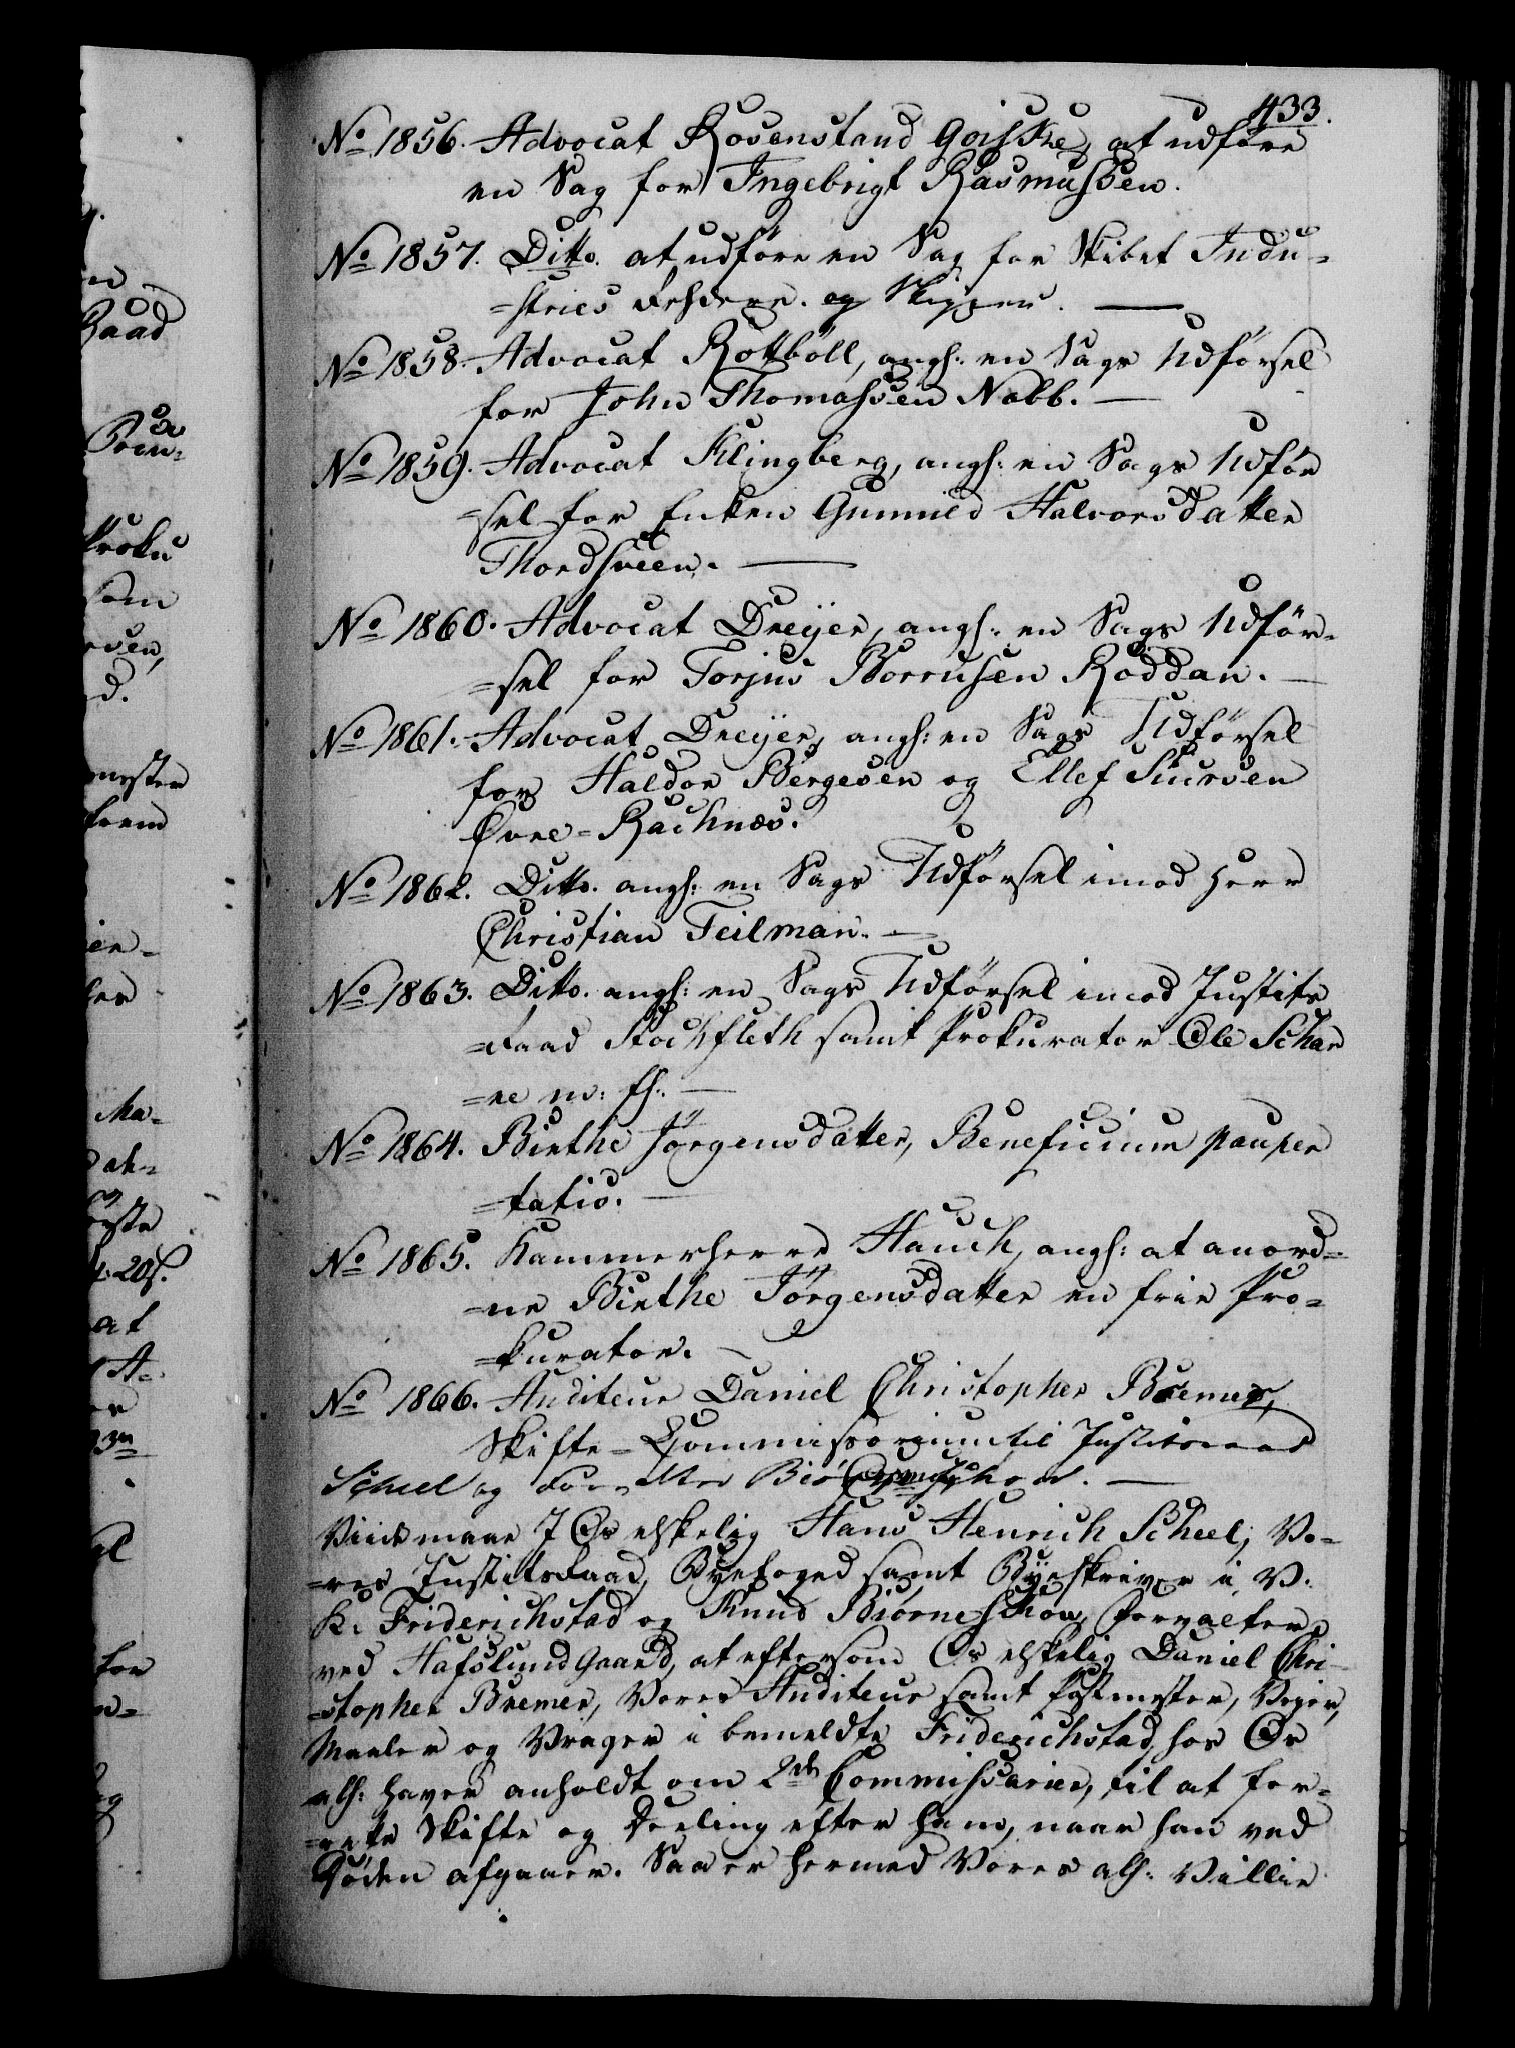 433.
No 1856. Advocat Rosenstand Goiske, at udføre
en Sag for Ingebrigt Rasmussen.
No 1857. Ditto. at udføre en Sag for Skibet Indu-
=stries Rehdere. og Skipper.
No 1858. Advocat Rottbøll, angl: en Sags Udførsel
for John Thomassen Nabb.
No 1859. Advocat Klingberg, angl: en Sags Udför
=sel for Enken Gunnild Halvorsdatter
Thordsveen.
No 1860. Advocat Dreijer, angl: en Sags Udför-
=sel for Torjus Borrusen Roddan.
No 1861. Advocat Dreijer, angl: en Sags Udförsel
for Haldor Bergesen og Ellef Siursen
Øvre-Rachnæs.
No 1862. Ditto. angl: en Sags Udförsel imod Herr
Christian Teilman.
No 1863. Ditto. angl: en Sags Udförsel imod Justits
=Raad Stockfleth samt Prokurator Ole Schar
=re m: fl:
No 1864. Birthe Jörgensdatter, Beneficium pauper
=tatis.
No 1865. Kammerherre Hauch, angl: at anord-
=ne Birthe Jörgensdatter en frie Pro-
=kurator.
No 1866. Auditeur Daniel Christopher Bremer,
Skifte-Commissorium til Justitsraad
Scheel og Forvalter Biørneschow.
Viide maae I Os elskelig Hans Henrich Scheel, Vo-
=res Justitsraad, Byefoged samt Byeskriver i V.
K. Friderichstad og Knud Biørneschow, Forvalter
ved Hafslund Gaard, at eftersom Os elskelig Daniel Chri-
=stopher Bremer, Vores Auditeur samt Postmester, Vejer,
Maaler og Vrager i bemeldte Friderichstad, hos Os
all: haver anholdt om 2de Commissarier, til at for-
=rette Skifte og Deeling efter ham, naar han ved
Døden afgaaer. Saa er hermed Vores all: Villie